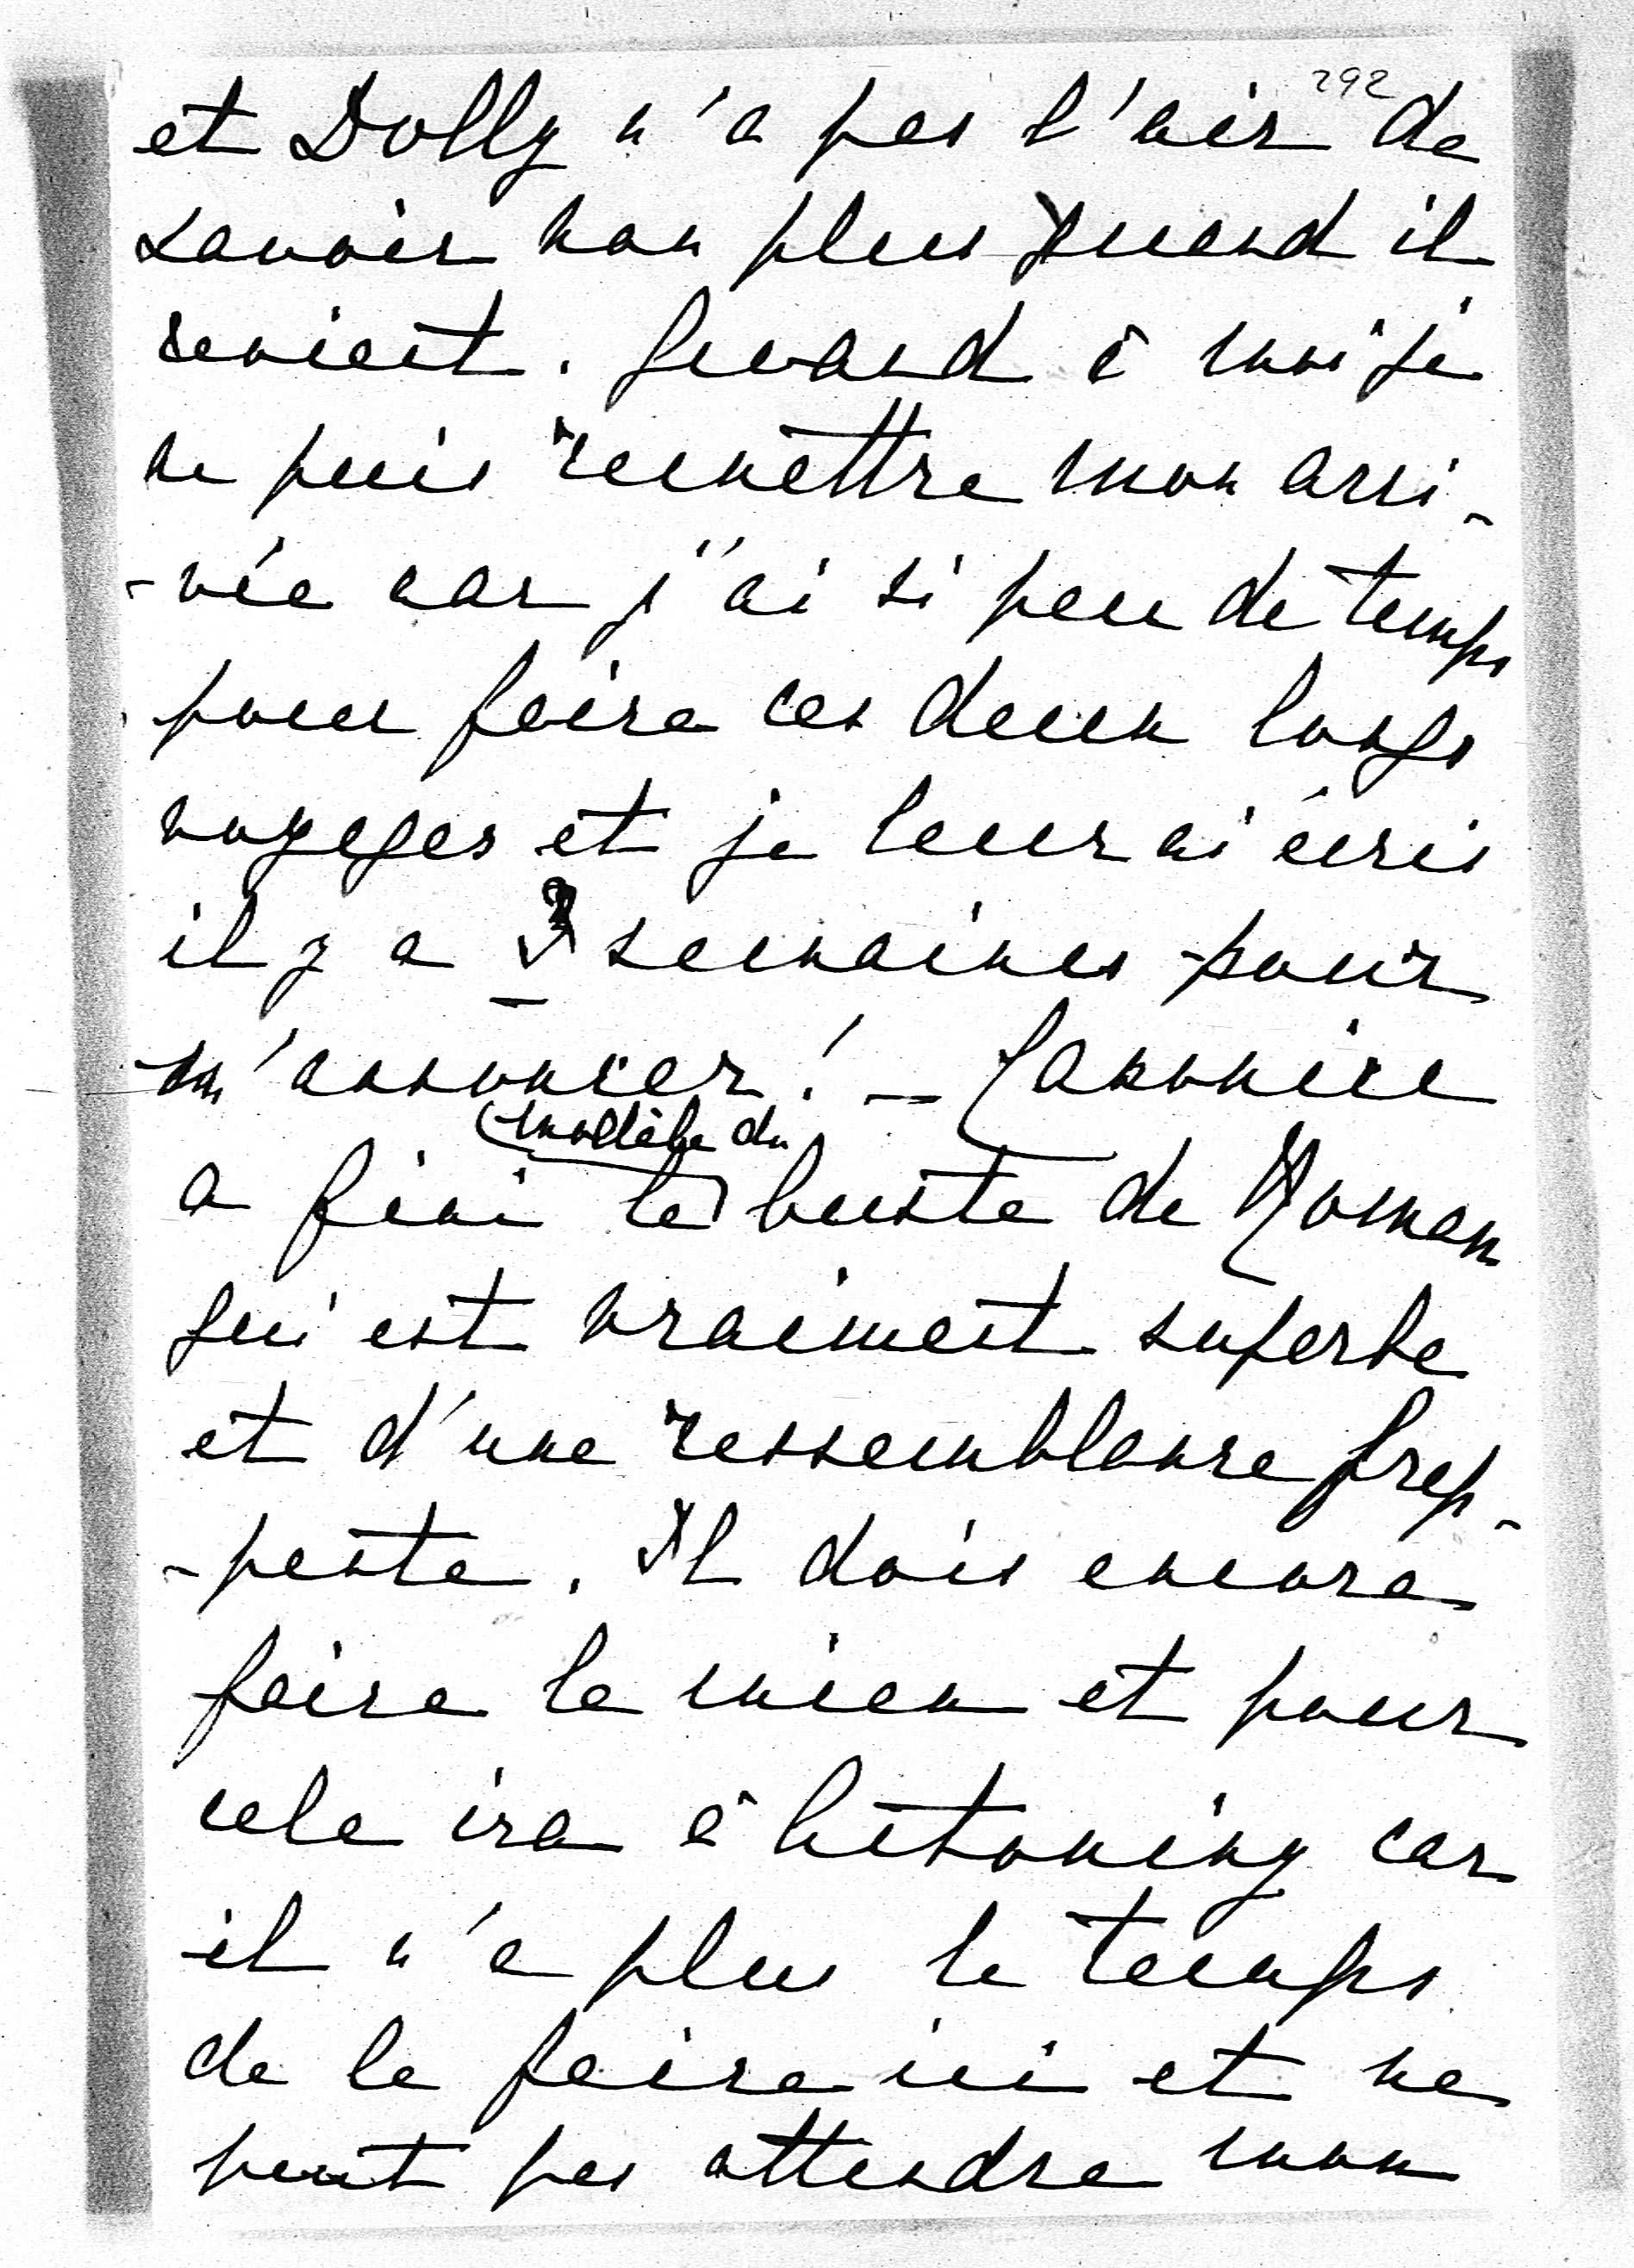 292
et Dolly n'a pas l'air de
savoir non plus quand il
revient. Quand à moi je
ne puis remettre mon arri-
-vée car j'ai si peu de temps
pour faire ces deux longs
voyages et je leur ai écris
il y a 3 semaines pour
m'annoncer! — Canonice
modèle du
a fini le buste de Roman
qui est vraiment superbe
et d'une ressemblance frap-
-pante. Il dois encore
faire le mien et pour
cela ira à car
il n'a plus le temps
de le faire ici et ne
peut pas attendre mon